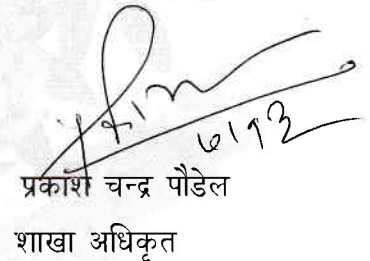 ७/१२
प्रकाश चन्द्र पौडेल
शाखा अधिकृत